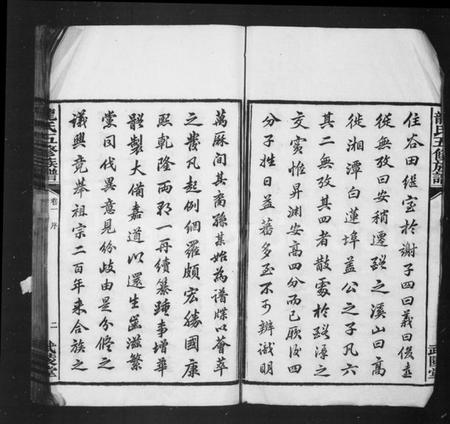 龍氏五修族譜
住谷田繼室於謝子四曰義曰俊並
從無攷曰安稍遷醴之溪山曰高
徙湘潭白蓮埠益公之子凡六
其二無攷其四者散處於醴潭之
交實惟昇淵安高四分而已厥後四
分子姓日益蕃多至不可辨識明
萬厤間其裔孫某始為譜牒以薈萃
之發凡起例網羅頗宏勝國康
熙乾隆兩朝一再續纂踵事增華
體製大備嘉道以還生齒滋繁
黨同伐異意見紛歧由是分修之
議興竟舉祖宗二百年來合族之
龍氏五修族譜
卷一 序
二
武陵堂